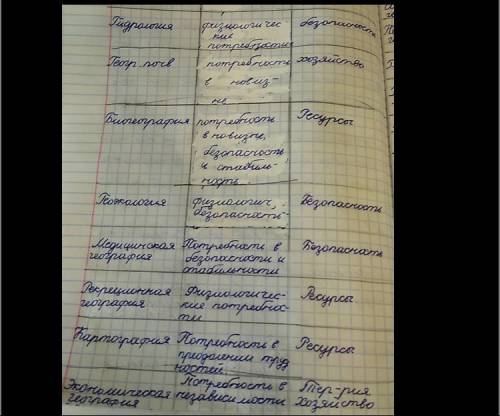 Гидрология физиологичес- безопасность
кие
потребности
Геогр. почв потребность хозяйство
в новиз-
не
Биогеография потребность Ресурсы
в новизне,
безопасность
и стабиль-
ность
Геоэкология физиологич., Безопасность
безопасность
Медицинская Потребность в Безопасность
география безопасности и
стабильности
Рекреционная Физиологичес- Ресурсы
география кие потребнос-
ти
Картография Потребность в Ресурсы
преодолении труд
ностей
Экономическая Потребность в Тер-рия
география независимости хозяйство